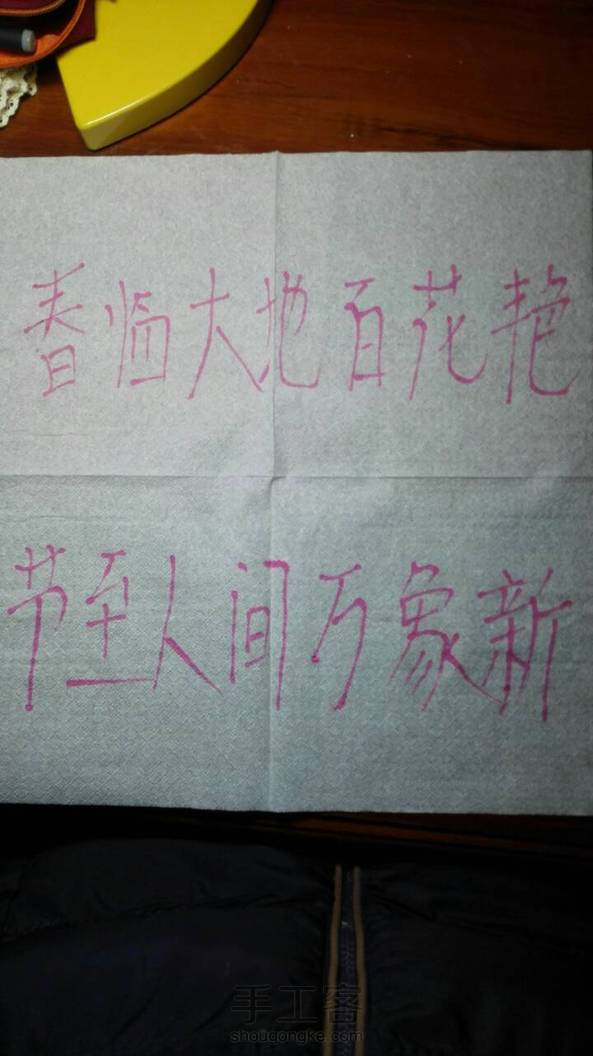 春临大地百花艳
节至人间万象新
手工客
shougongke.com